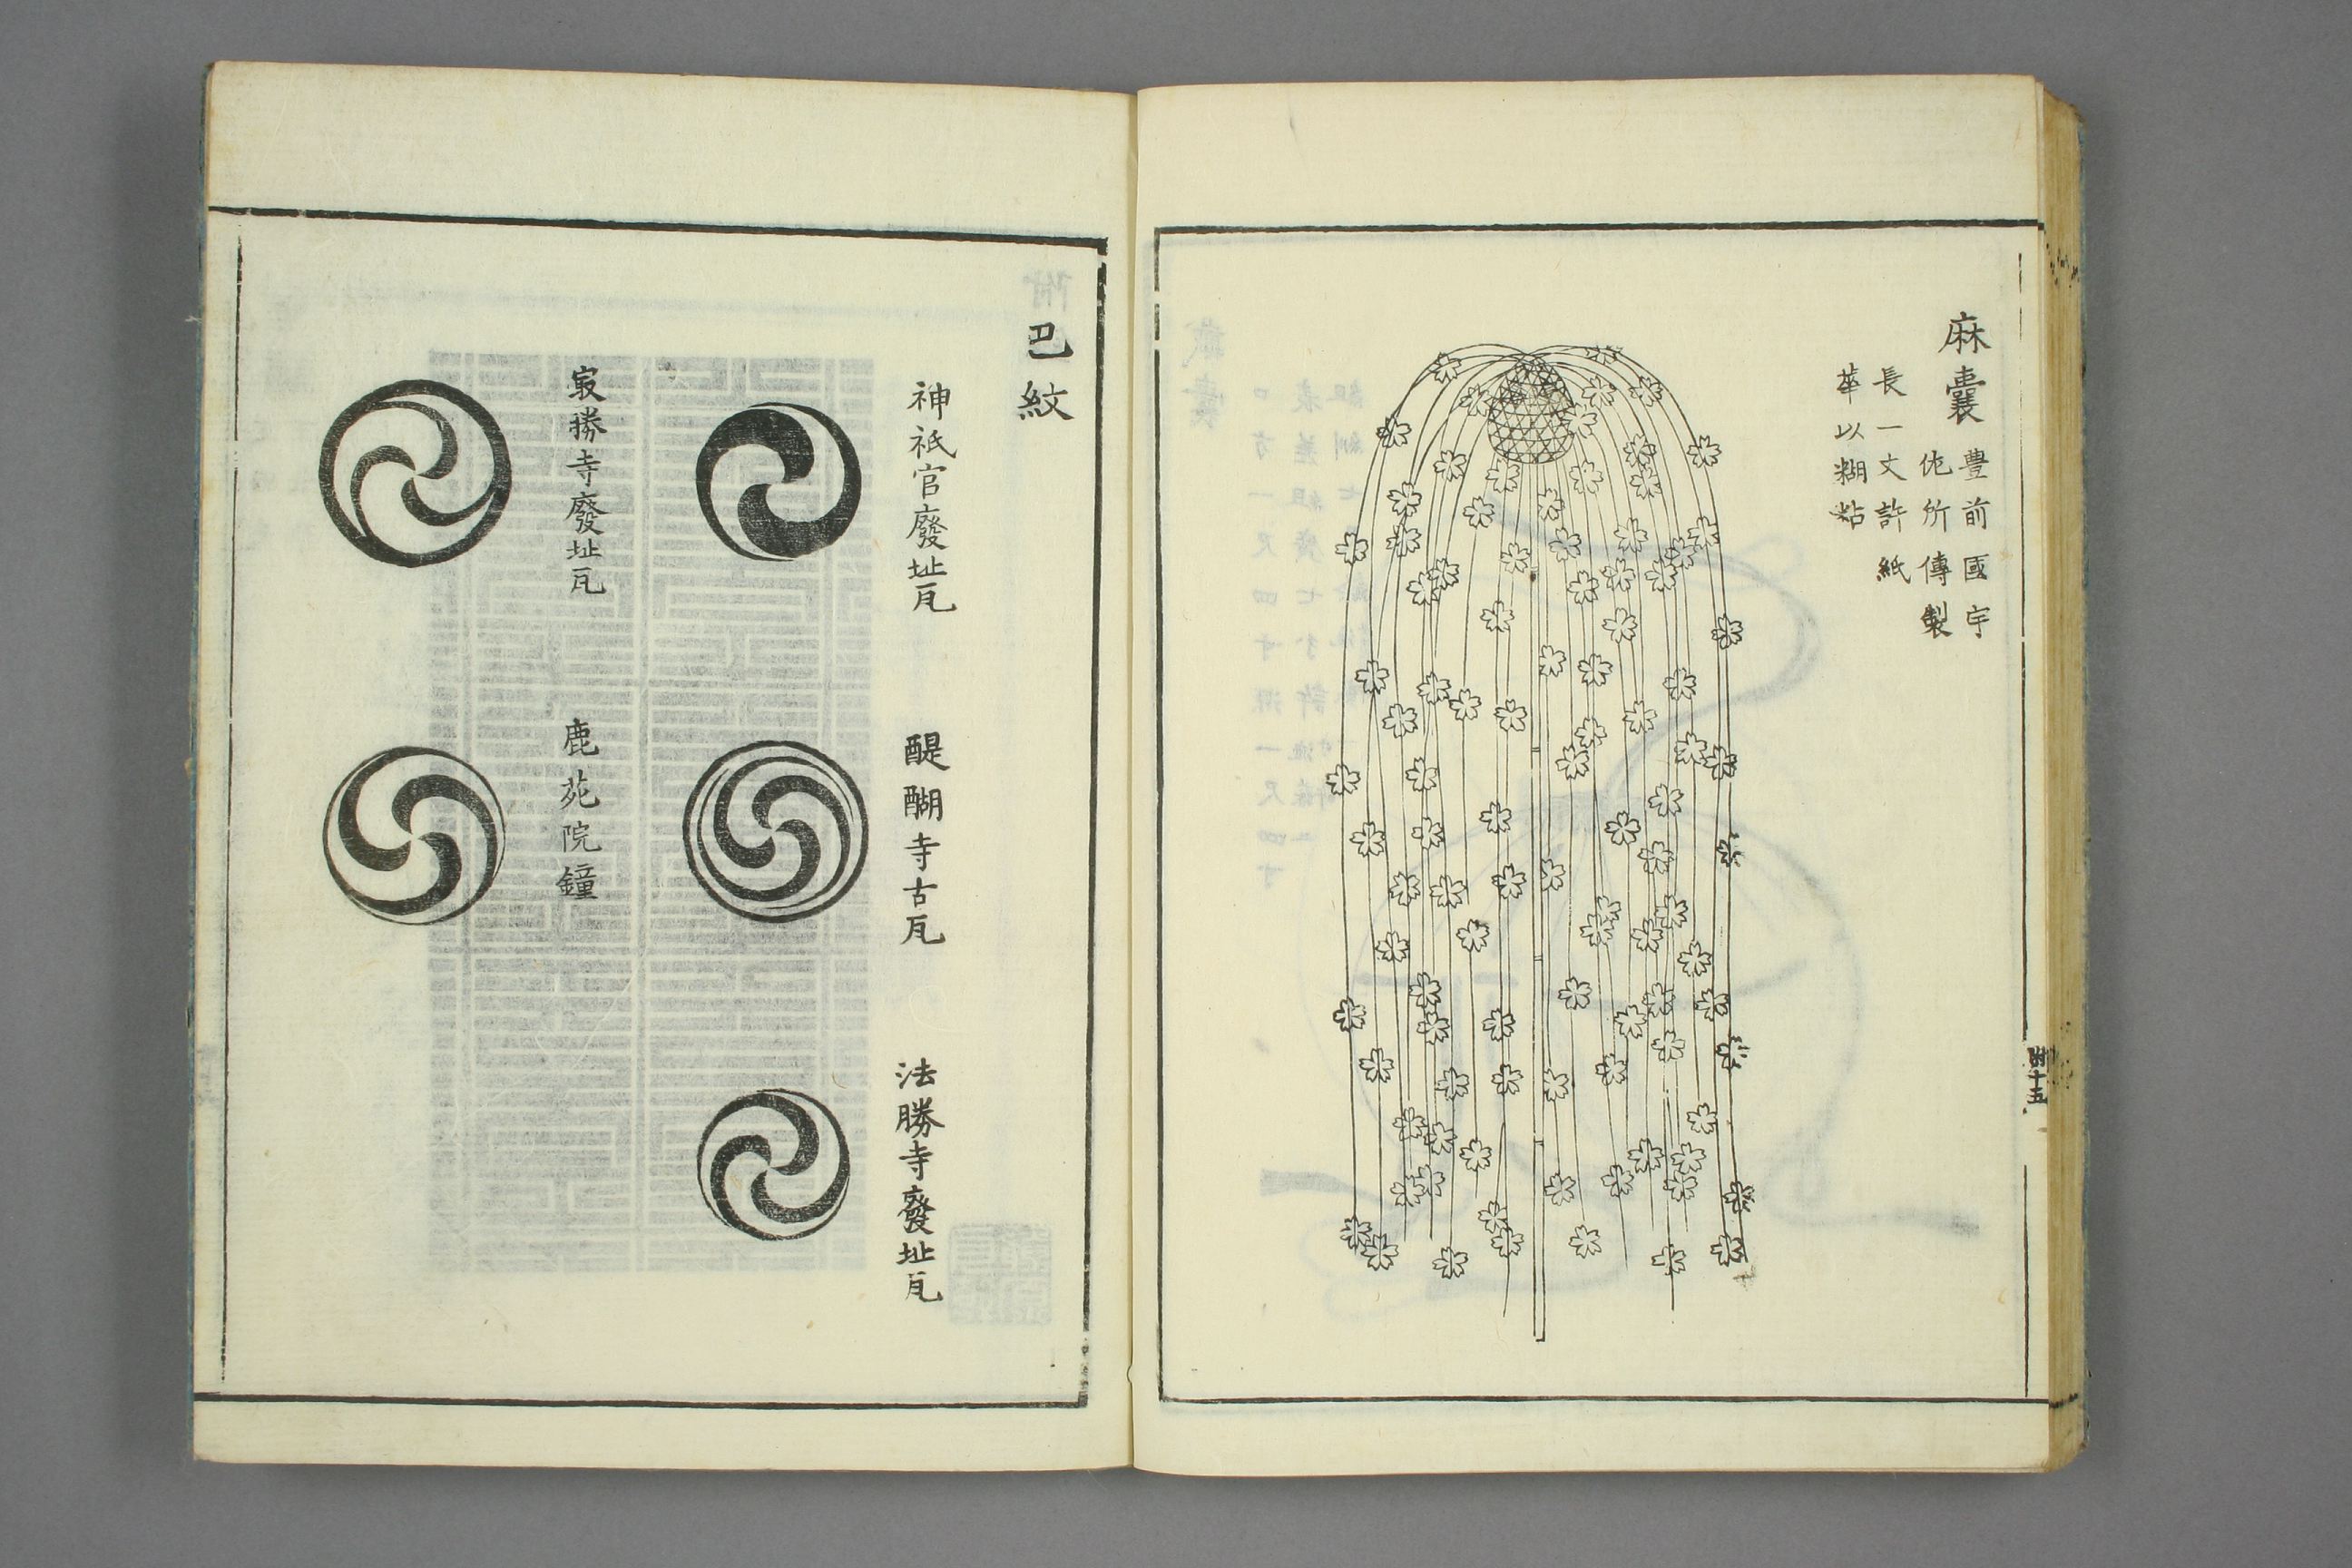 麻囊
豊前國宇
佐所傳製
長一丈許紙
華以糊粘
附十五
巴紋
神祇官廢址瓦
醍醐寺古瓦
法勝寺廢址瓦
冣勝寺廢址瓦
鹿苑院鐘